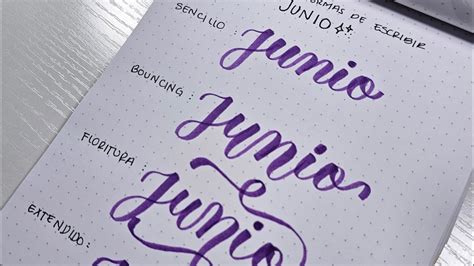 FORMAS DE ESCRIBIR
JUNIO
SENCILLO :
Junio
BOUNCING :
Junio
FLORITURA :
Junio
EXTENDIDO :